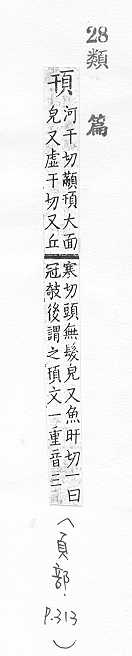 28
類篇
頇
河干切顢頇大面
皃又虛干切又丘
寒切頭無髮皃又魚旰切一曰
冠後謂之頇文一重音三
(頁部. P.313)